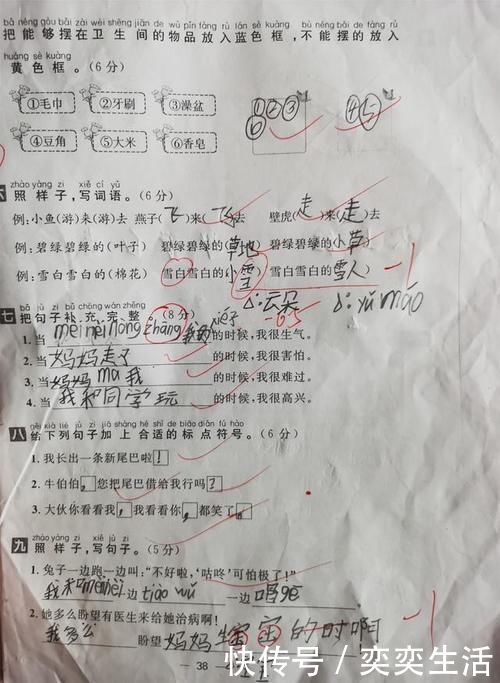 bǎ néng gòu bǎi zài wèi shēng jiān de wù pǐn fàng rù lán sè kuàng bù néng bǎi de fàng rù
把能够摆在卫生间的物品放入蓝色框,不能摆的放入
huáng sè kuàng
黄色框。(6分)
①毛巾 ②牙刷 ③澡盆 ①②③ ④⑤
④豆角 ⑤大米 ⑥香皂 ⑥
zhào yàng zi xiě cí yǔ
六 照样子,写词语。(6分)
例:小鱼(游)来(游)去 燕子(飞)来(飞)去 壁虎(走)来(走)去
例:碧绿碧绿的(叶子) 碧绿碧绿的(草地) 碧绿碧绿的(小草)
例:雪白雪白的(棉花) 雪白雪白的(小雪) 雪白雪白的(雪人) -1
云朵 yǔ máo
bǎ jù zi bǔ chōng wán zhěng
七 把句子补充完整。(8分) -0.5
1.当 mèi mei nòng zhāng 我的 xié子 的时候,我很生气。
2.当 妈妈走了 的时候,我很害怕。
3.当 妈妈 mà 我 的时候,我很难过。
4.当 我和同学玩 的时候,我很高兴。
gěi xià liè jù zi jiā shàng hé shì de biāo diǎn fú hào
八 给下列句子加上合适的标点符号。(6分)
1.我长出一条新尾巴啦!
2.牛伯伯,您把尾巴借给我行吗?
3.大伙你看看我,我看看你,都笑了。
zhào yàng zi xiě jù zi
九 照样子,写句子。(5分)
1.兔子一边跑一边叫:“不好啦,‘咕咚’可怕极了!”
我和 mèi mei 一边 tiào wǔ 一边 唱 gē
2.她多么盼望有医生来给她治病啊!
我多么 盼望 妈妈 的时啊 -1
38
快传号 / 奕奕生活